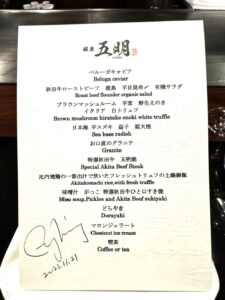 銀座 五明
ベルーガキャビア
Beluga caviar
秋田牛ローストビーフ 鹿島 平目昆布〆 有機サラダ
Roast beef flounder organic salad
ブラウンマッシュルーム 平茸 野生えのき
イタリア 白トリュフ
Brown mushroom hiratake enoki white truffle
日本海 平スズキ 益子 姫大根
Sea bass radish
お口直のグラニテ
Granite
特選秋田牛 五明焼
Special Akita Beef Steak
比内地鶏の一番出汁で炊いたフレッシュトリュフの土鍋御飯
Akitakomachi rice,with fresh truffle
味噌汁 がっこ 特選秋田牛ひと口すき焼
Miso soup,Pickles and Akita Beef sukiyaki
どらやき
Dorayaki
マロンジェラート
Chestnut ice cream
喫茶
Coffee or tea
2021.11.21